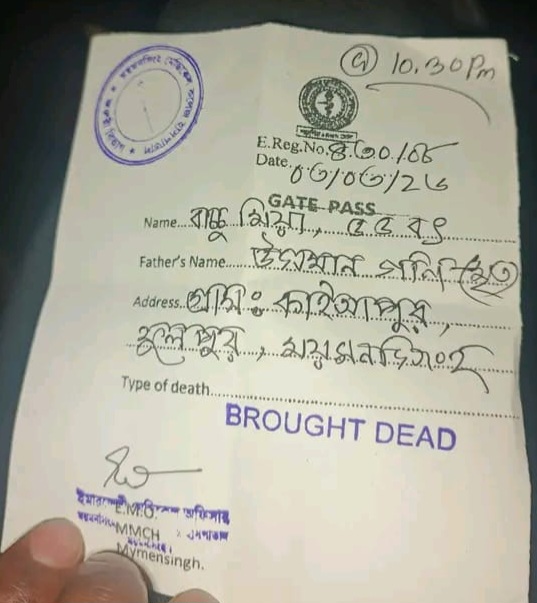 @ 10.30 Pm
E.Reg.No.
Date. ০৩/০৩/২৬
GATE PASS
Name... বাচ্চু মিয়া, ৫৫ বৎ
Father's Name..... উসমান গনি (মৃত)
Address.. গ্রাম: কাইচাপুর,
ফুলপুর, ময়মনসিংহ
Type of death.
BROUGHT DEAD
ইমারজেন্সী মেডিকেল অফিসার
E.M.O.
MMCH
Mymensingh.